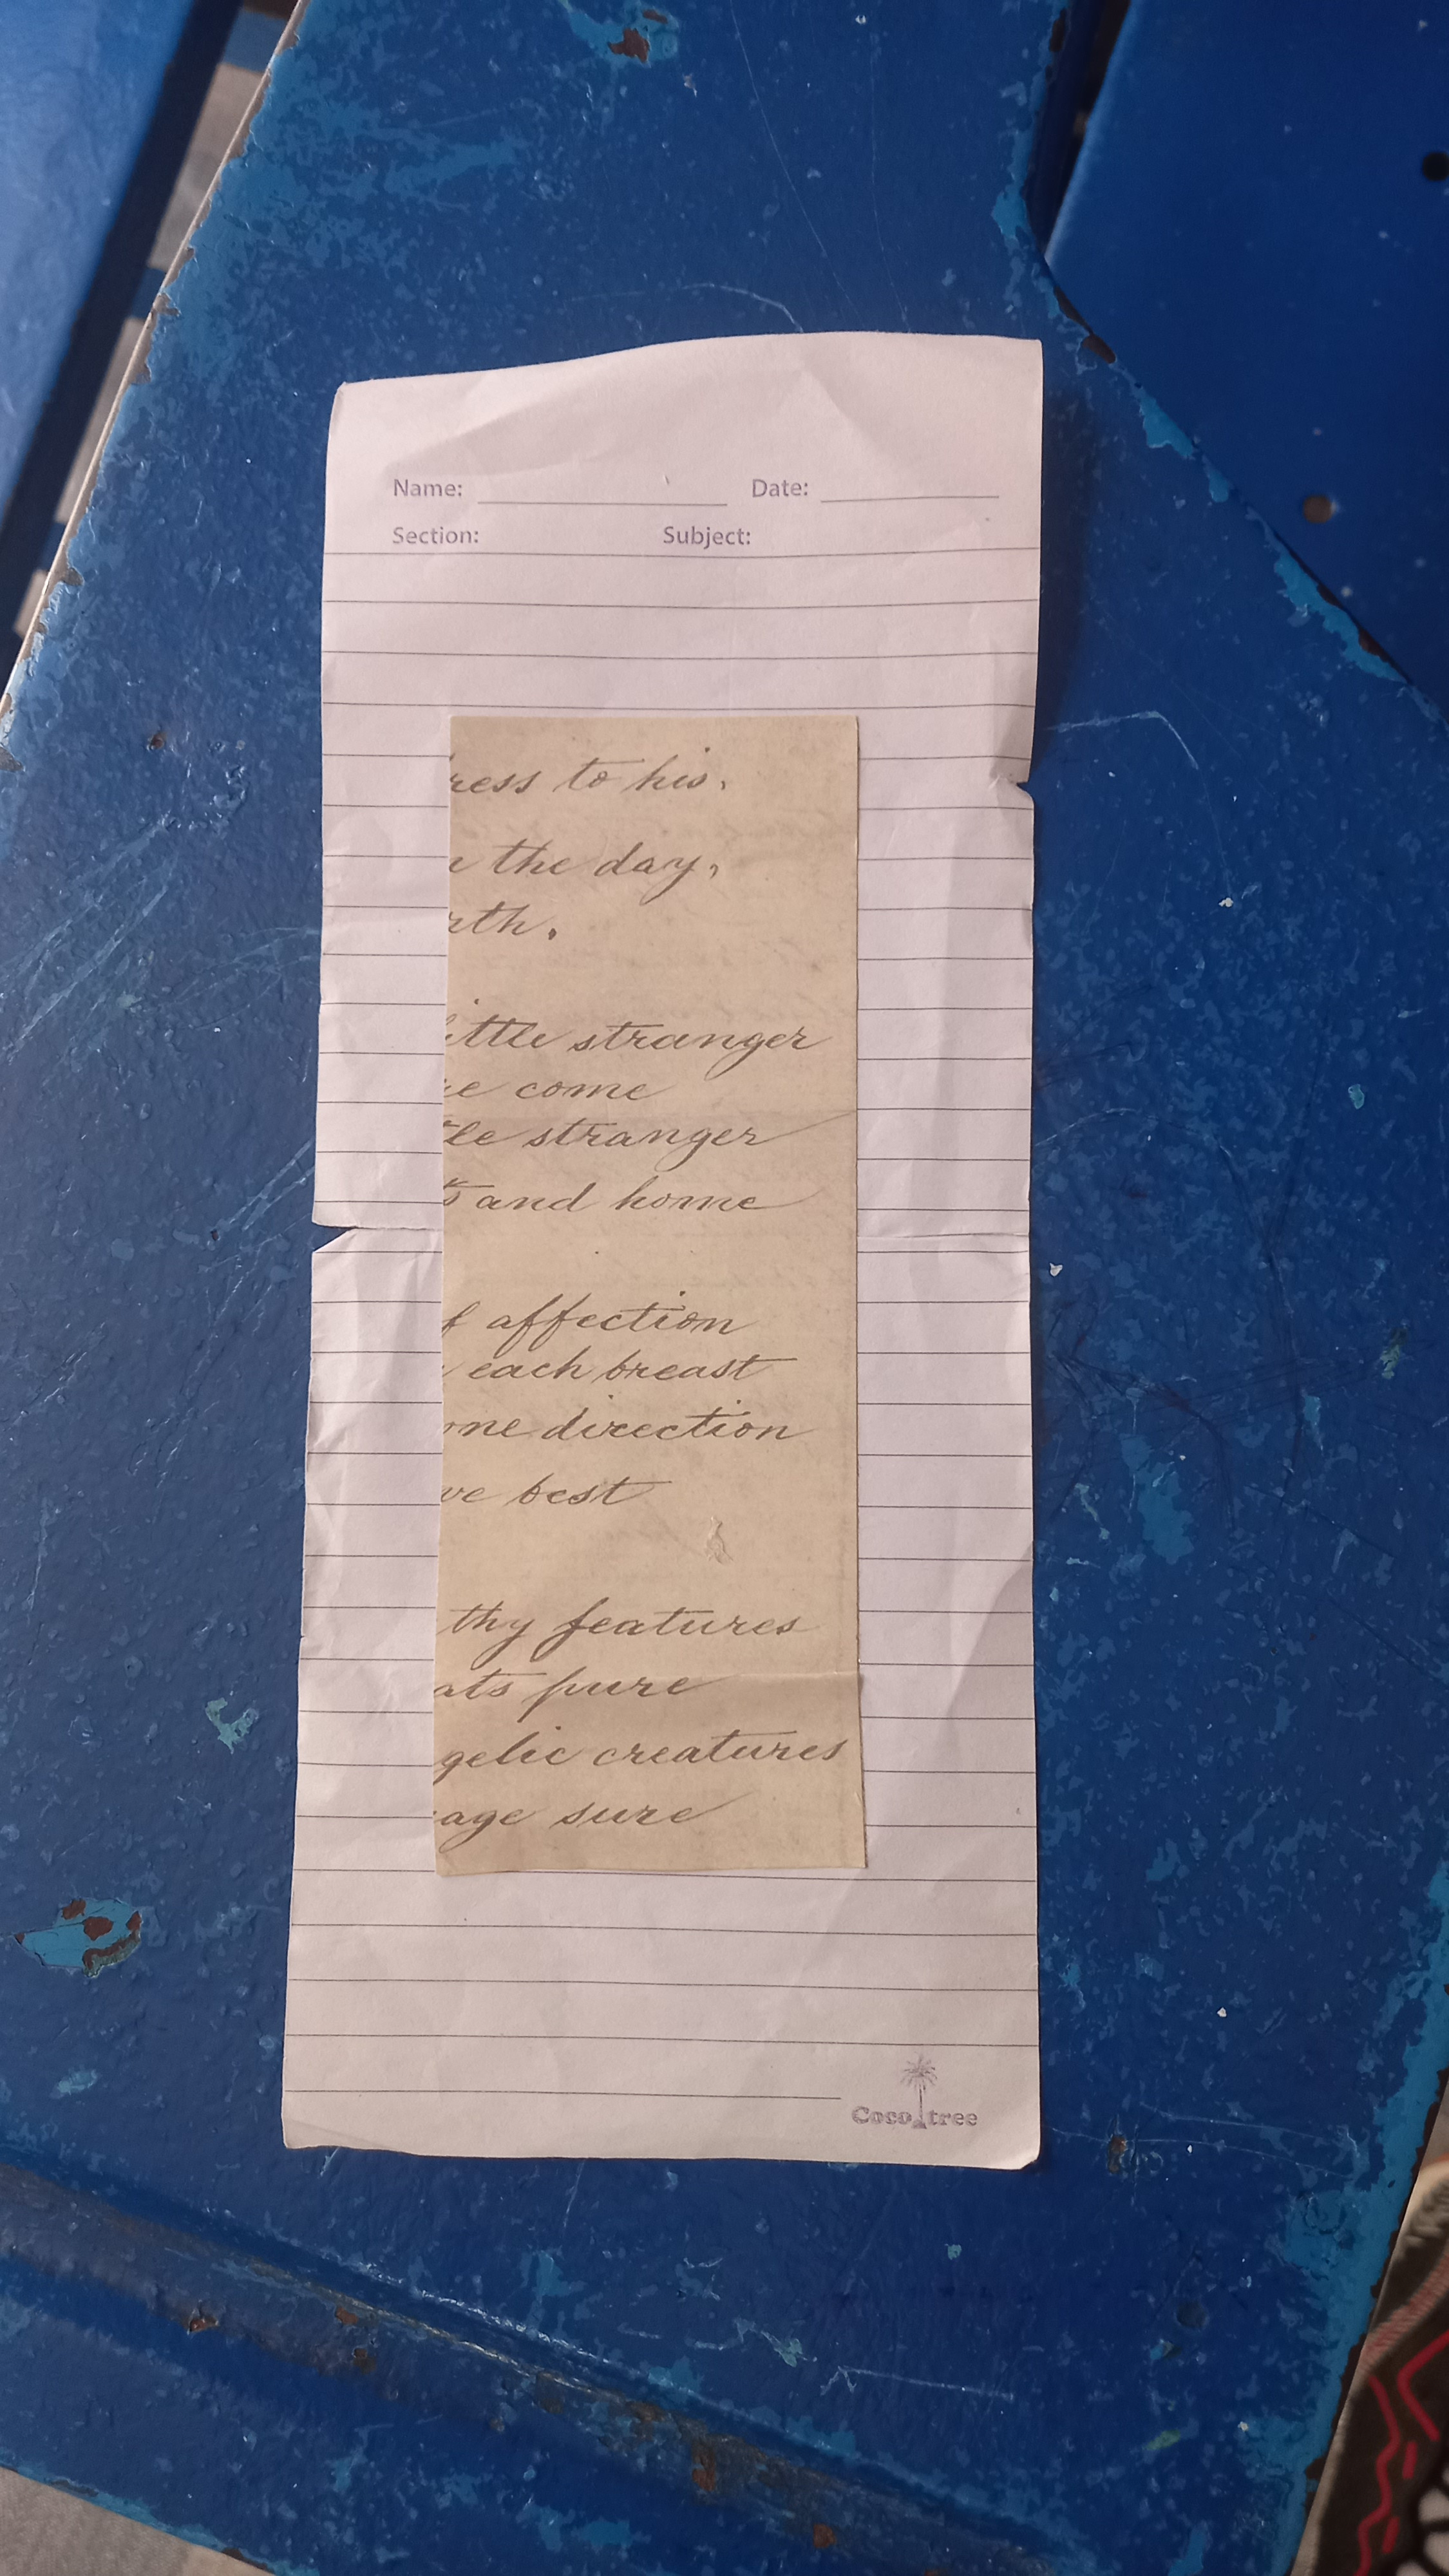 Name: Date:
Section: Subject:
ress to his,
the day,
rth.
ittle stranger
e come
tle stranger
ts and home
f affection
each breast
one direction
ve best
thy features
ats pure
gelic creatures
age sure
Coco tree